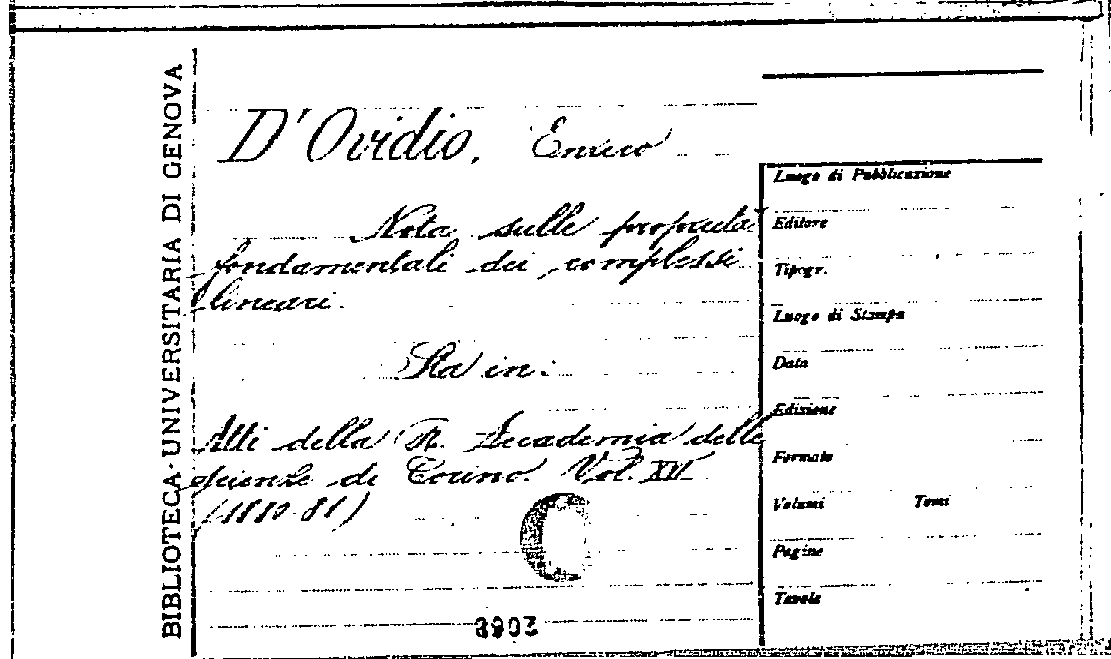 BIBLIOTECA-UNIVERSITARIA DI GENOVA
D'Ovidio, Enrico
Nota sulle proprietà
fondamentali dei complessi
lineari.
Sta in:
Atti della R. Accademia delle
scienze di Torino. Vol. XVI
(1880-81)
Luogo di Pubblicazione
Editore
Tipogr.
Luogo di Stampa
Data
Edizione
Formato
Volumi Tomi
Pagine
Tavole